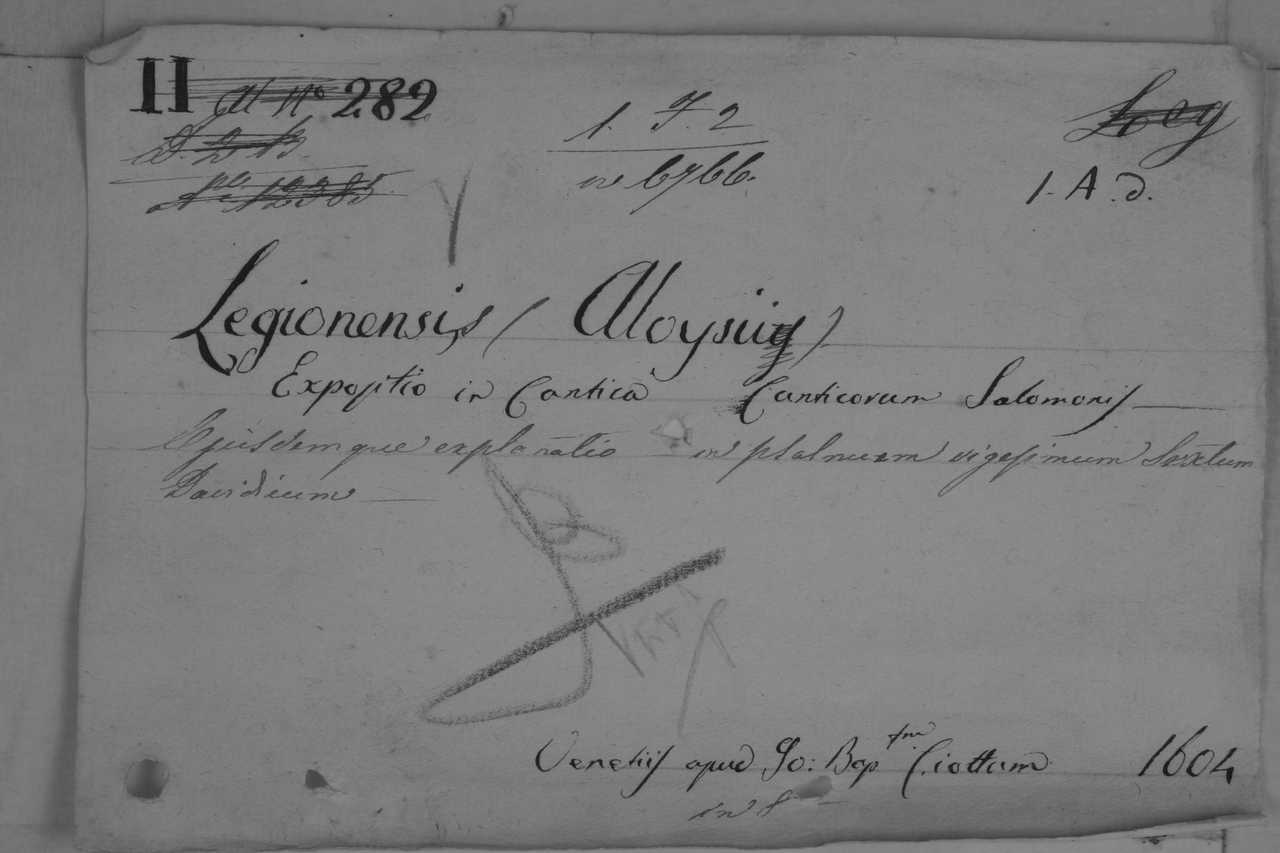 II 282
1. F. 2
6766.
Leg
1. A. d.
Legionensis (Aloysius)
Expositio in Cantica Canticorum Salomonis
Ejusdemque explanatio in psalmum vigesimum sextum
Davidium
Venetiis apud Jo: Bap tm Ciottum 1604
in 8